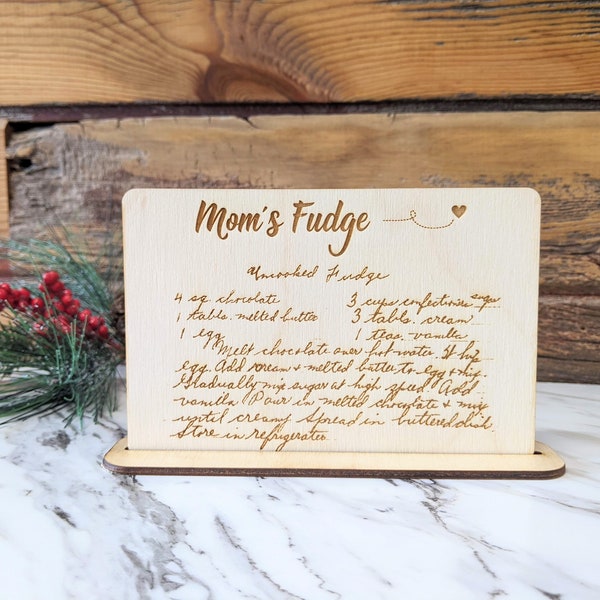 Mom's Fudge
Uncooked Fudge
4 sq. chocolate 3 cups confectioners sugar
1 tabls. melted butter 3 tabls. cream
1 egg 1 teas. vanilla
Melt chocolate over hot water.
egg. Add cream & melted butter to egg & mix.
Gradually mix sugar at high speed. Add
vanilla. Pour in melted chocolate & mix
until creamy. Spread in buttered dish.
Store in refrigerator.